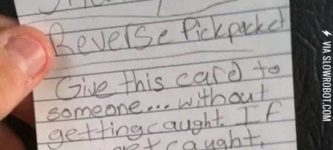 Reverse Pickpocket
Give this card to
someone... without
getting caught. If
get caught,
VIA SLOWROBOT.COM